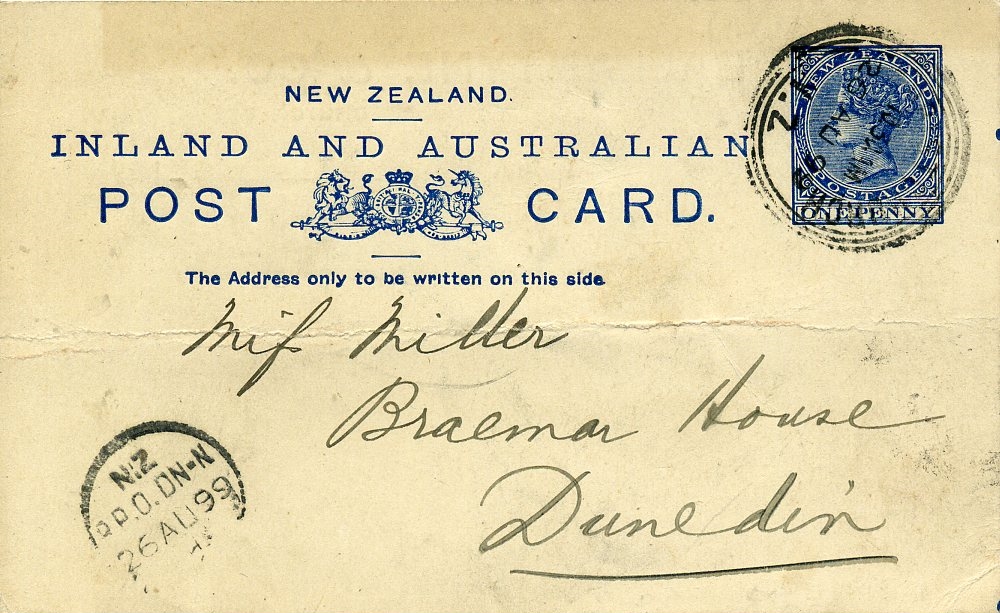 NEW ZEALAND.
INLAND AND AUSTRALIAN
POST CARD.
The Address only to be written on this side.
NEW ZEALAND
POSTAGE
ONE PENNY
N.Z
AU
Miss Miller
Braemar House
Dunedin
N.Z
R.P.O. DN-N
26 AU 99